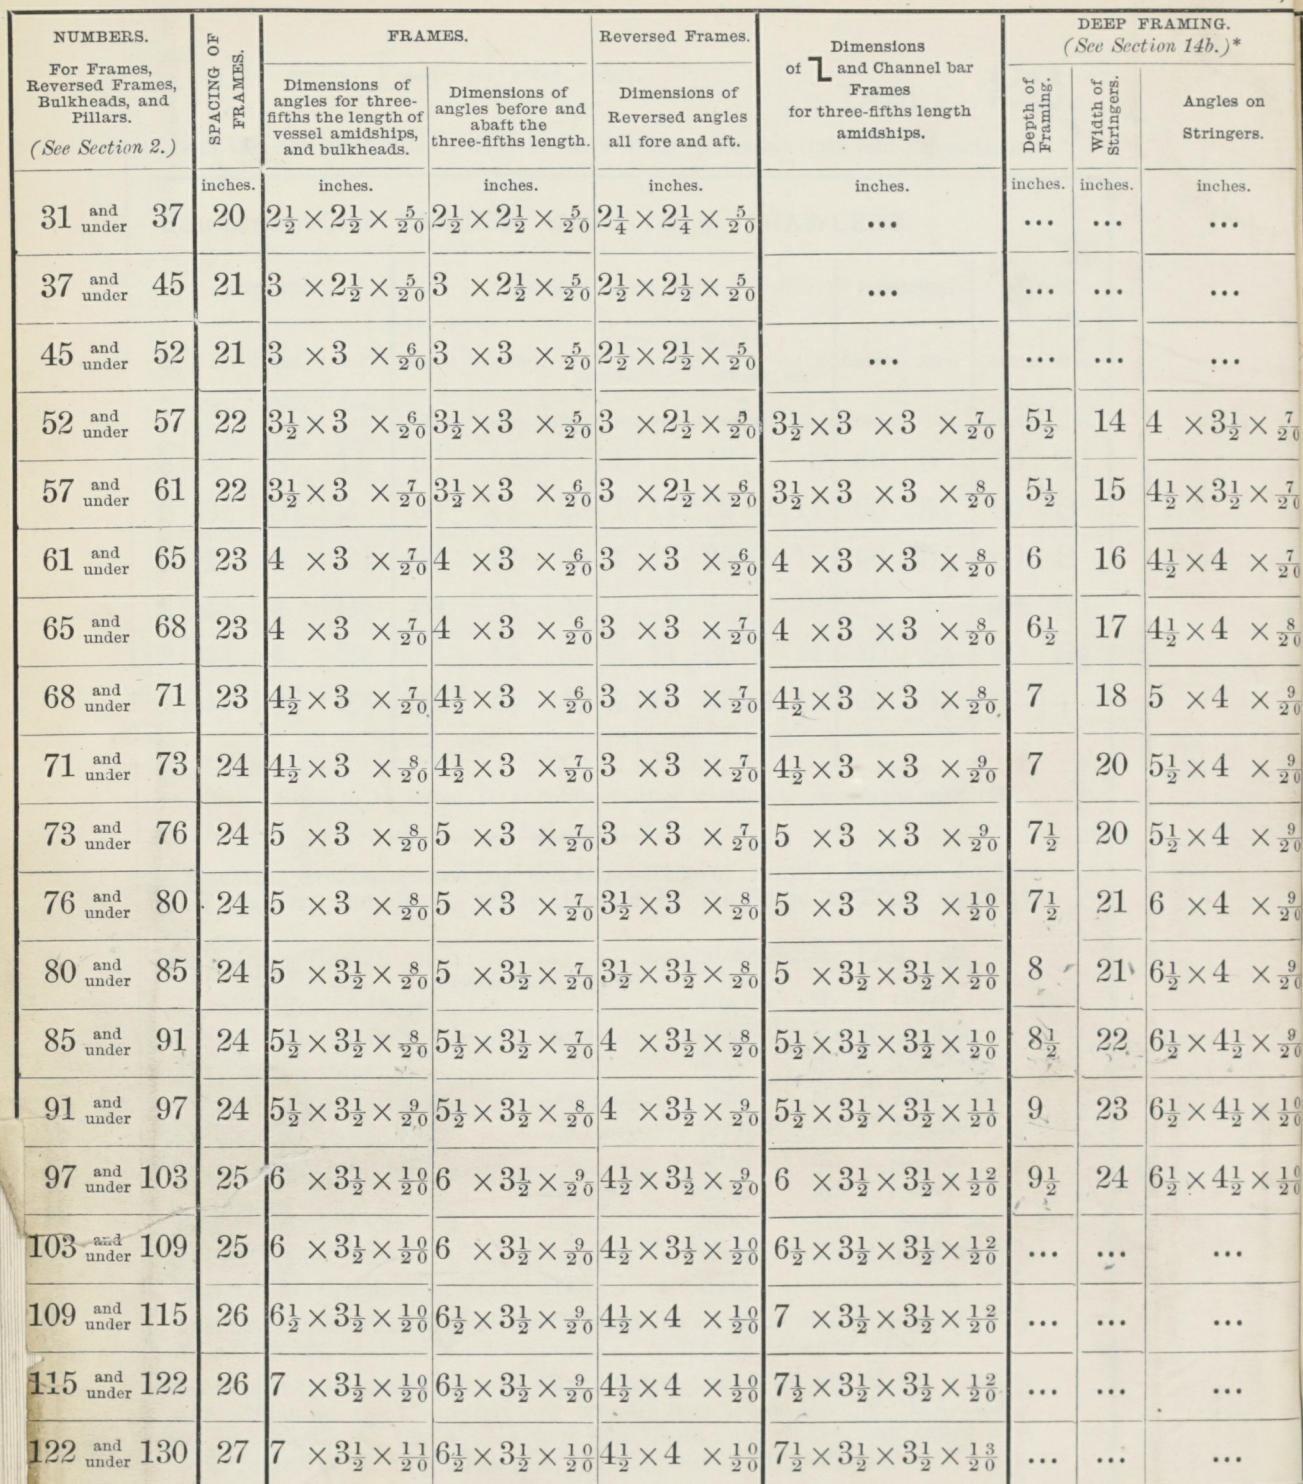 NUMBERS.
For Frames,
Reversed Frames,
Bulkheads, and
Pillars.
(See Section 2.)
SPACING OF
FRAMES.
FRAMES.
Dimensions of
angles for three-
fifths the length of
vessel amidships,
and bulkheads.
Dimensions of
angles before and
abaft the
three-fifths length.
Reversed Frames.
Dimensions of
Reversed angles
all fore and aft.
Dimensions
of and Channel bar
Frames
for three-fifths length
amidships.
DEEP FRAMING.
(See Section 14b.)*
Depth of
Framing.
Width of
Stringers.
Angles on
Stringers.
inches. inches. inches. inches. inches. inches. inches. inches.
31 and under 37 20 2½ × 2½ × 5/20 2½ × 2½ × 5/20 2¼ × 2¼ × 5/20 ... ... ... ...
37 and under 45 21 3 × 2½ × 5/20 3 × 2½ × 5/20 2½ × 2½ × 5/20 ... ... ... ...
45 and under 52 21 3 × 3 × 6/20 3 × 3 × 5/20 2½ × 2½ × 5/20 ... ... ... ...
52 and under 57 22 3½ × 3 × 6/20 3½ × 3 × 5/20 3 × 2½ × 5/20 3½ × 3 × 3 × 7/20 5½ 14 4 × 3½ × 7/20
57 and under 61 22 3½ × 3 × 7/20 3½ × 3 × 6/20 3 × 2½ × 6/20 3½ × 3 × 3 × 8/20 5½ 15 4½ × 3½ × 7/20
61 and under 65 23 4 × 3 × 7/20 4 × 3 × 6/20 3 × 3 × 6/20 4 × 3 × 3 × 8/20 6 16 4½ × 4 × 7/20
65 and under 68 23 4 × 3 × 7/20 4 × 3 × 6/20 3 × 3 × 7/20 4 × 3 × 3 × 8/20 6½ 17 4½ × 4 × 8/20
68 and under 71 23 4½ × 3 × 7/20 4½ × 3 × 6/20 3 × 3 × 7/20 4½ × 3 × 3 × 8/20 7 18 5 × 4 × 9/20
71 and under 73 24 4½ × 3 × 8/20 4½ × 3 × 7/20 3 × 3 × 7/20 4½ × 3 × 3 × 9/20 7 20 5½ × 4 × 9/20
73 and under 76 24 5 × 3 × 8/20 5 × 3 × 7/20 3 × 3 × 7/20 5 × 3 × 3 × 9/20 7½ 20 5½ × 4 × 9/20
76 and under 80 24 5 × 3 × 8/20 5 × 3 × 7/20 3½ × 3 × 8/20 5 × 3 × 3 × 10/20 7½ 21 6 × 4 × 9/20
80 and under 85 24 5 × 3½ × 8/20 5 × 3½ × 7/20 3½ × 3½ × 8/20 5 × 3½ × 3½ × 10/20 8 21 6½ × 4 × 9/20
85 and under 91 24 5½ × 3½ × 8/20 5½ × 3½ × 7/20 4 × 3½ × 8/20 5½ × 3½ × 3½ × 10/20 8½ 22 6½ × 4½ × 9/20
91 and under 97 24 5½ × 3½ × 9/20 5½ × 3½ × 8/20 4 × 3½ × 9/20 5½ × 3½ × 3½ × 11/20 9 23 6½ × 4½ × 10/20
97 and under 103 25 6 × 3½ × 10/20 6 × 3½ × 9/20 4½ × 3½ × 9/20 6 × 3½ × 3½ × 12/20 9½ 24 6½ × 4½ × 10/20
103 and under 109 25 6 × 3½ × 10/20 6 × 3½ × 9/20 4½ × 3½ × 10/20 6½ × 3½ × 3½ × 12/20 ... ... ...
109 and under 115 26 6½ × 3½ × 10/20 6½ × 3½ × 9/20 4½ × 4 × 10/20 7 × 3½ × 3½ × 12/20 ... ... ...
115 and under 122 26 7 × 3½ × 10/20 6½ × 3½ × 9/20 4½ × 4 × 10/20 7½ × 3½ × 3½ × 12/20 ... ... ...
122 and under 130 27 7 × 3½ × 11/20 6½ × 3½ × 10/20 4½ × 4 × 10/20 7½ × 3½ × 3½ × 13/20 ... ... ...